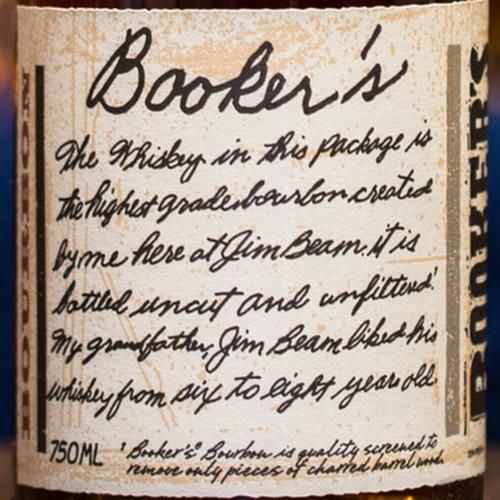 Booker's
The Whiskey in this package is
the highest grade bourbon created
by me here at Jim Beam. it is
bottled uncut and unfiltered.¹
My grandfather, Jim Beam liked his
whiskey from six to eight years old.
750ML
¹ Booker's® Bourbon is quality screened to
remove only pieces of charred barrel wood.
BOURBON
BOOKER'S